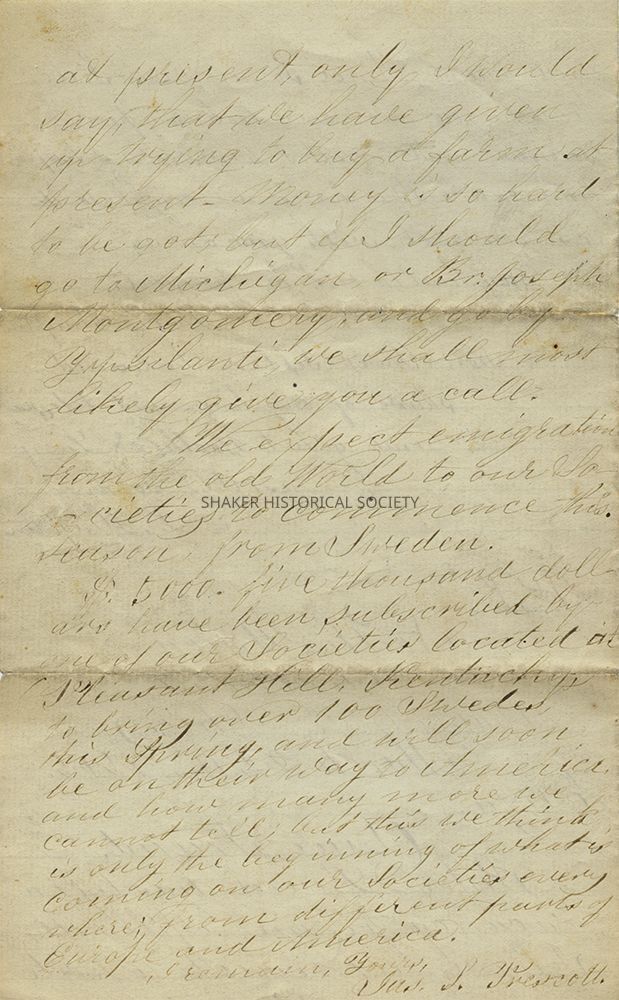 at present, only I would
say, that we have given
up trying to buy a farm at
present - Money is so hard
to be got; but if I should
go to Michigan, or Br. Joseph
Montgomery, and go by
Ypsilanti, we shall most
likely give you a call.
We expect emigration
from the old World to our So-
SHAKER HISTORICAL SOCIETY
cieties to commence this
season, from Sweden.
$. 5000. five thousand doll-
ars have been subscribed by
one of our Societies located at
Pleasant Hill, Kentucky,
to bring over 100 Swedes,
this Spring, and will soon
be on their way to America,
and how many more we
cannot tell; but this we think
is only the beginning of what is
coming on our Societies every
where; from different parts of
Europe and America.
I remain, Yours,
Jas. S. Prescott.